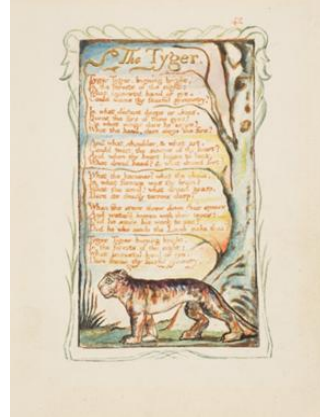 42
The Tyger.
Tyger Tyger, burning bright,
In the forests of the night;
What immortal hand or eye,
Could frame thy fearful symmetry?
In what distant deeps or skies,
Burnt the fire of thine eyes?
On what wings dare he aspire?
What the hand, dare sieze the fire?
And what shoulder, & what art,
Could twist the sinews of thy heart?
And when thy heart began to beat,
What dread hand? & what dread feet?
What the hammer? what the chain,
In what furnace was thy brain?
What the anvil? what dread grasp,
Dare its deadly terrors clasp?
When the stars threw down their spears
And water'd heaven with their tears:
Did he smile his work to see?
Did he who made the Lamb make thee?
Tyger Tyger burning bright,
In the forests of the night:
What immortal hand or eye,
Dare frame thy fearful symmetry?